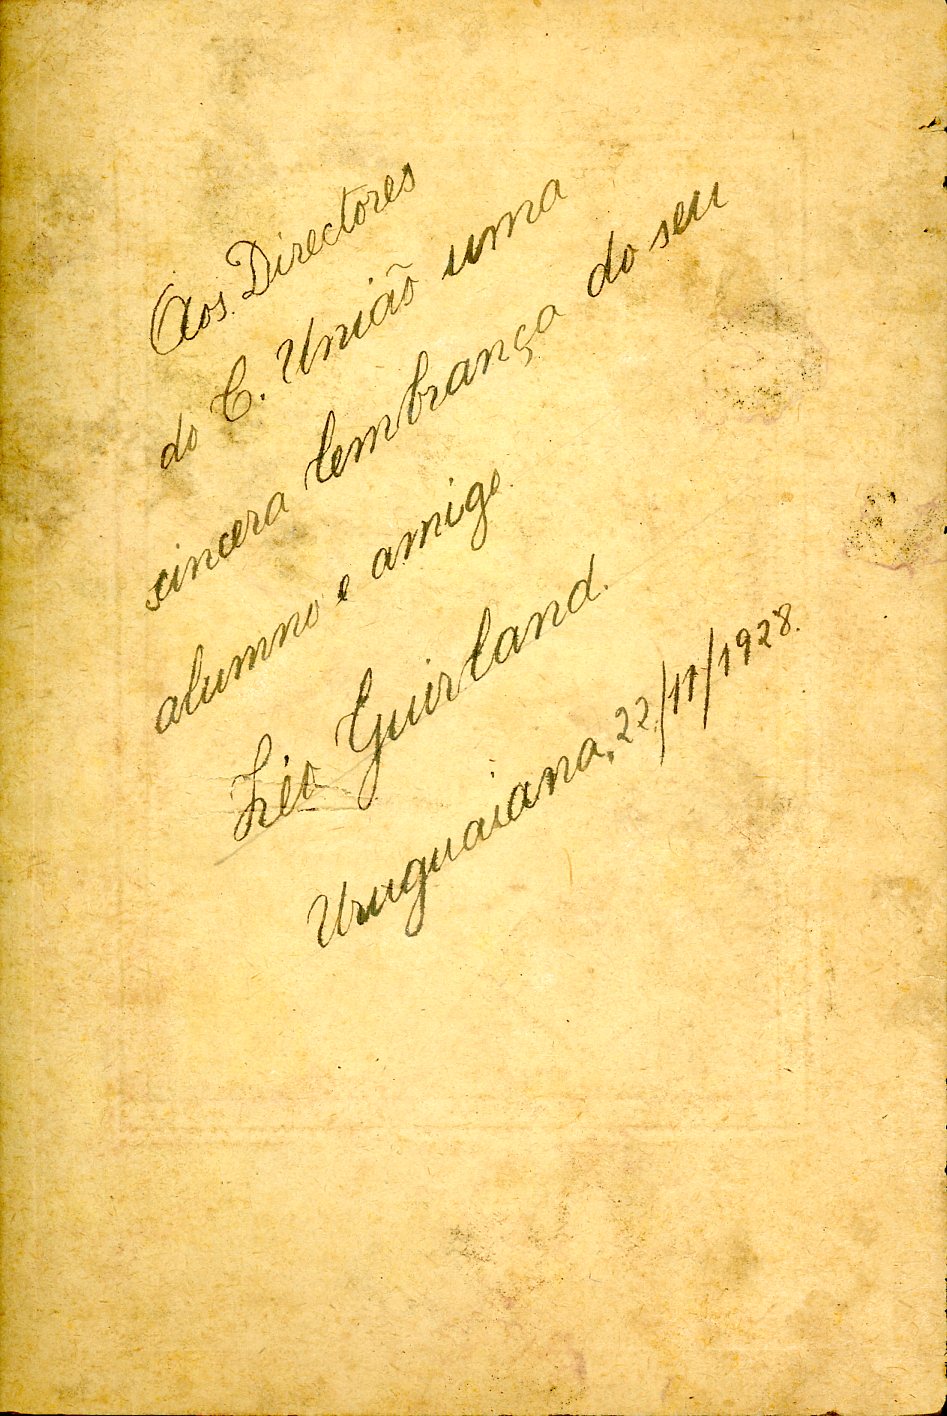 Aos Directores
do C. União uma
sincera lembrança do seu
alumno e amigo
Léo Guirland.
Uruguaiana, 22/11/1928.